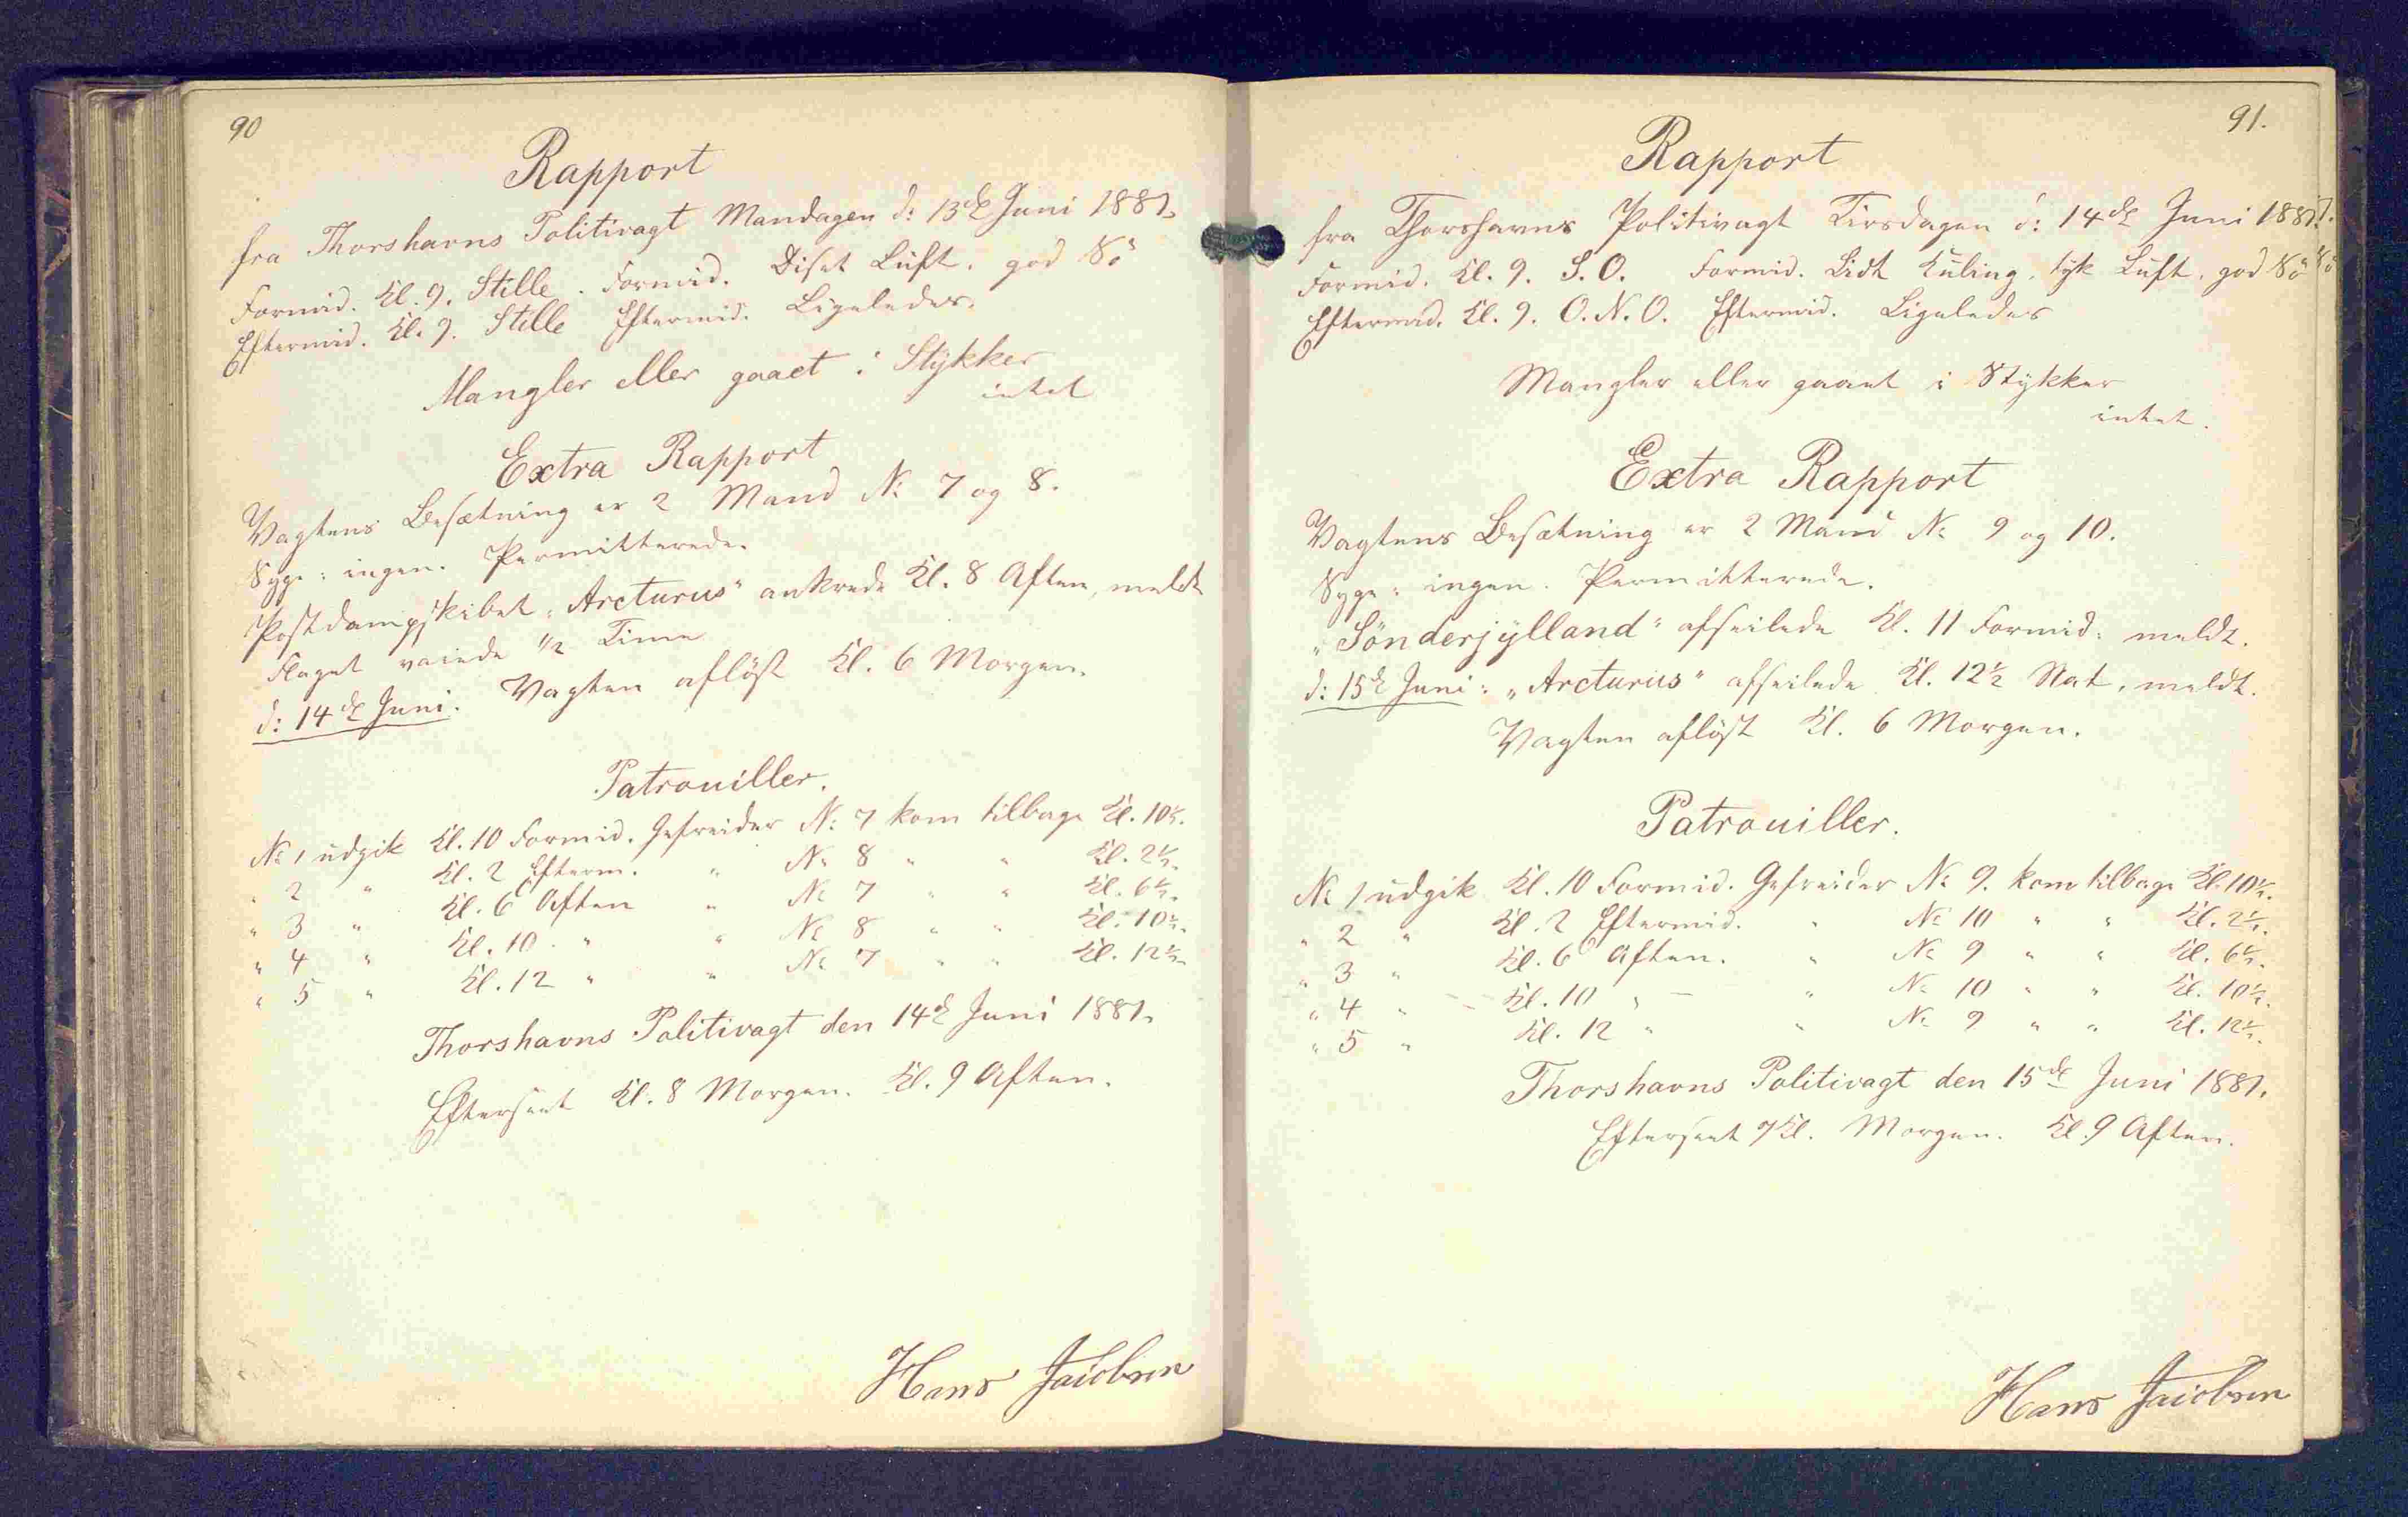 90
Rapport
fra Thorshavns Politivagt Mandagen d: 13de Juni 1881.
Formid. Kl. 9. Stille. Formid. Diset Luft. god Sö
Eftermid. Kl. 9. Stille Eftermid. Ligeledes.
Mangler eller gaaet i Stÿkker
intet
Extra Rapport
Vagtens Besætning er 2 Mand No 7 og 8.
Syge: ingen. Permitterede.
Postdampskibet „Arcturus“ ankrede Kl. 8 Aften, meldt
Flaget vaiede 1/2 Time
d: 14de Juni. Vagten aflöst Kl. 6 Morgen.
Patrouiller.
No 1 udgik Kl. 10 Formid. Gefreider No 7 kom tilbage Kl. 10½.
" 2 " Kl. 2 Efterm. " No 8 " " Kl. 2½.
" 3 " Kl. 6 Aften " No 7 " " Kl. 6½.
" 4 " Kl. 10 " " No 8 " " Kl. 10½.
" 5 " Kl. 12 " " No 7 " " Kl. 12½.
Thorshavns Politivagt den 14de Juni 1881.
Efterseet Kl. 8 Morgen. Kl. 9 Aften.
Hans Jacobsen
91.
Rapport
fra Thorshavns Politivagt Tirsdagen d: 14de Juni 1881.
Formid. Kl. 9. S.O. Formid. Lidt Kuling, tÿk Luft, god Sö
Eftermid. Kl. 9. O.N.O. Eftermid. Ligeledes
Mangler eller gaaet i Stÿkker
intet.
Extra Rapport
Vagtens Besætning er 2 Mand No 9 og 10.
Syge: ingen. Permitterede.
„Sönderjÿlland“ afseilede Kl. 11 Formid: meldt.
d: 15de Juni: „Arcturus“ afseilede Kl. 12½ Nat, meldt.
Vagten aflöst Kl. 6 Morgen.
Patrouiller.
No 1 udgik Kl. 10 Formid. Gefreider No 9. kom tilbage Kl. 10½.
" 2 " Kl. 2 Eftermid. " No 10 " " Kl. 2½.
" 3 " Kl. 6 Aften. " No 9 " " Kl. 6½.
" 4 " Kl. 10 " " No 10 " " Kl. 10½.
" 5 " Kl. 12 " " No 9 " " Kl. 12½.
Thorshavns Politivagt den 15de Juni 1881.
Efterseet 7 Kl. Morgen. Kl. 9 Aften.
Hans Jacobsen